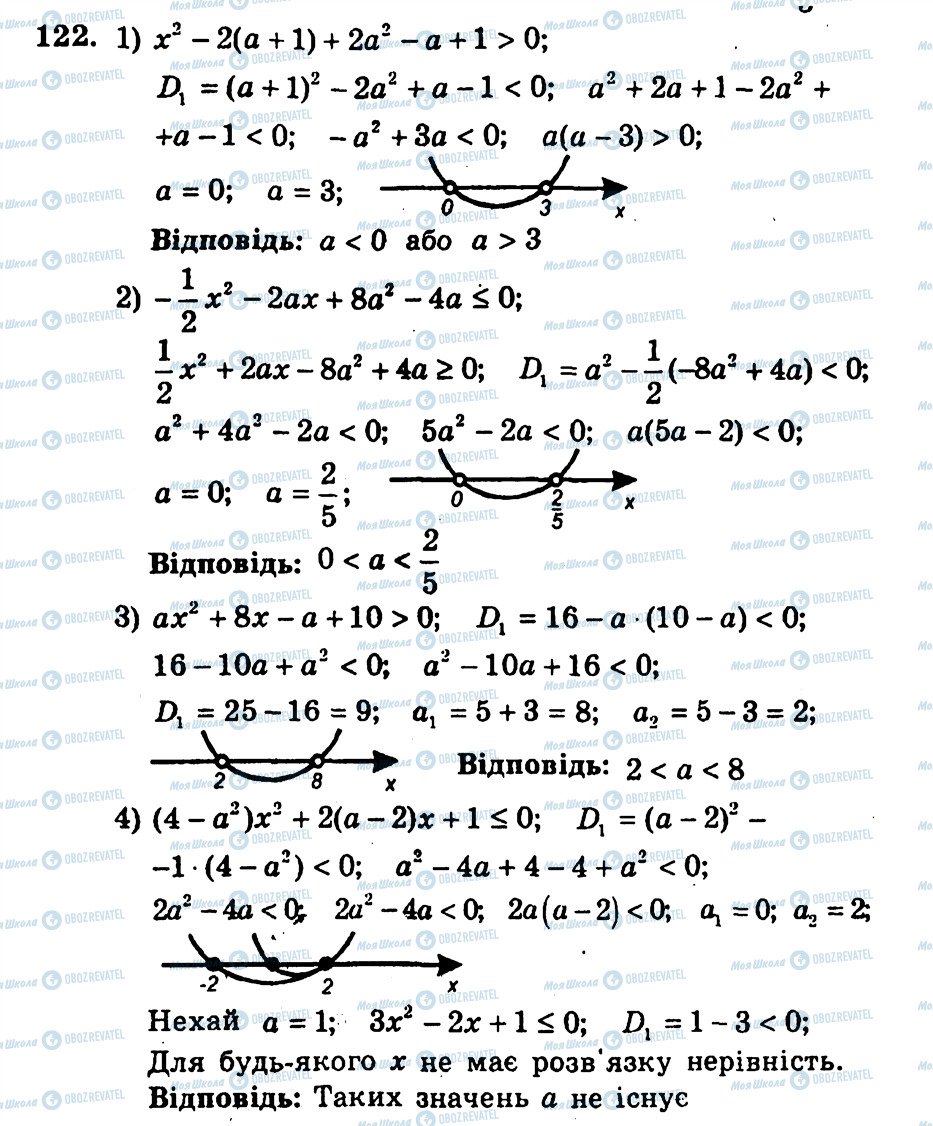 122. 1) x² − 2(a + 1) + 2a² − a + 1 > 0;
D₁ = (a + 1)² − 2a² + a − 1 < 0; a² + 2a + 1 − 2a² +
+a − 1 < 0; − a² + 3a < 0; a(a − 3) > 0;
a = 0; a = 3; 0 3 x
Відповідь: a < 0 або a > 3
2) −1/2 x² − 2ax + 8a² − 4a ≤ 0;
1/2 x² + 2ax − 8a² + 4a ≥ 0; D₁ = a² − 1/2 (−8a² + 4a) < 0;
a² + 4a² − 2a < 0; 5a² − 2a < 0; a(5a − 2) < 0;
a = 0; a = 2/5; 0 2/5 x
Відповідь: 0 < a < 2/5
3) ax² + 8x − a + 10 > 0; D₁ = 16 − a · (10 − a) < 0;
16 − 10a + a² < 0; a² − 10a + 16 < 0;
D₁ = 25 − 16 = 9; a₁ = 5 + 3 = 8; a₂ = 5 − 3 = 2;
2 8 x Відповідь: 2 < a < 8
4) (4 − a²)x² + 2(a − 2)x + 1 ≤ 0; D₁ = (a − 2)² −
−1 · (4 − a²) < 0; a² − 4a + 4 − 4 + a² < 0;
2a² − 4a < 0; 2a² − 4a < 0; 2a(a − 2) < 0; a₁ = 0; a₂ = 2;
-2 2 x
Нехай a = 1; 3x² − 2x + 1 ≤ 0; D₁ = 1 − 3 < 0;
Для будь-якого x не має розв'язку нерівність.
Відповідь: Таких значень a не існує
Моя Школа OBOZREVATEL